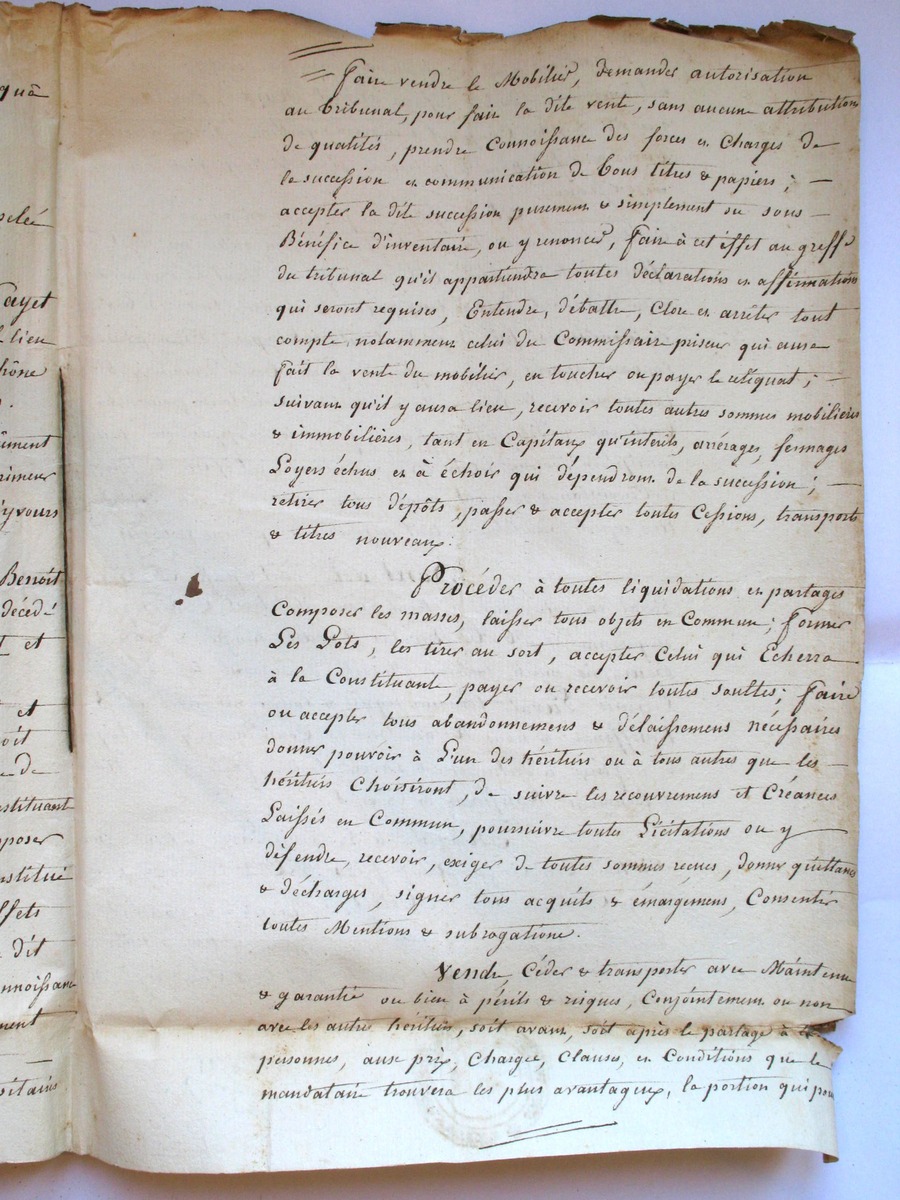 quâ
pelé
Payet
lieu
hône
ûment
rimeur
yvours
Benoit
décédé
et
et
oit
de
nstituant
pposer
nstitué
ffets
dit
nnoissance
ment
sitains
Faire vendre le Mobilier, demander autorisation
au tribunal, pour faire la dite vente, sans aucune attributions
de qualités, prendre Connoissance des forces et Charges de
la succession et communication de tous titres & papiers; —
accepter la dite succession purement & simplement ou sous —
Bénéfice d'inventaire, ou y renoncer, faire à cet effet au greffe
du tribunal qu'il appartiendra toutes déclarations et affirmations
qui seront requises, Entendre, débattre, Clore et arrêter tout
compte, notamment celui du Commissaire priseur qui aura
fait la vente du mobilier, en toucher ou payer le reliquat; —
suivant qu'il y aura lieu, recevoir toutes autres sommes mobilières
& immobilières, tant en Capitaux qu'intérêts, arrérages, fermages
Loyers échus et à échoir qui dépendront de la succession; —
retirer tous dépôts, passer & accepter toutes Cessions, transports
& titres nouveaux.
Procéder à toutes liquidations et partages
Composer les masses, laisser tous objets en Commun; former
Les Lots, les tirer au sort, accepter Celui qui Echerra
à la Constituant, payer ou recevoir toutes soultes; faire
ou accepter tous abandonnemens & délaissemens nécessaires
donner pouvoir à L'un des héritiers ou à tous autres que les —
héritiers Choisiront, de suivre les recouvremens et Créances
Laissés en Commun, poursuivre toutes Licitations ou y
défendre, recevoir, exiger de toutes sommes reçues, donner quittances
& décharges, signer tous acquits & émargemens, Consentir
toutes Mentions & subrogations.
Vendre, Céder & transporter avec Maintenue
& garantie ou bien à périls & risques, Conjointement ou non
avec les autres héritiers, soit avant, soit après le partage à
personnes, aux prix, Charges, Clauses, et Conditions que le
mandataire trouvera les plus avantageux, la portion qui pou